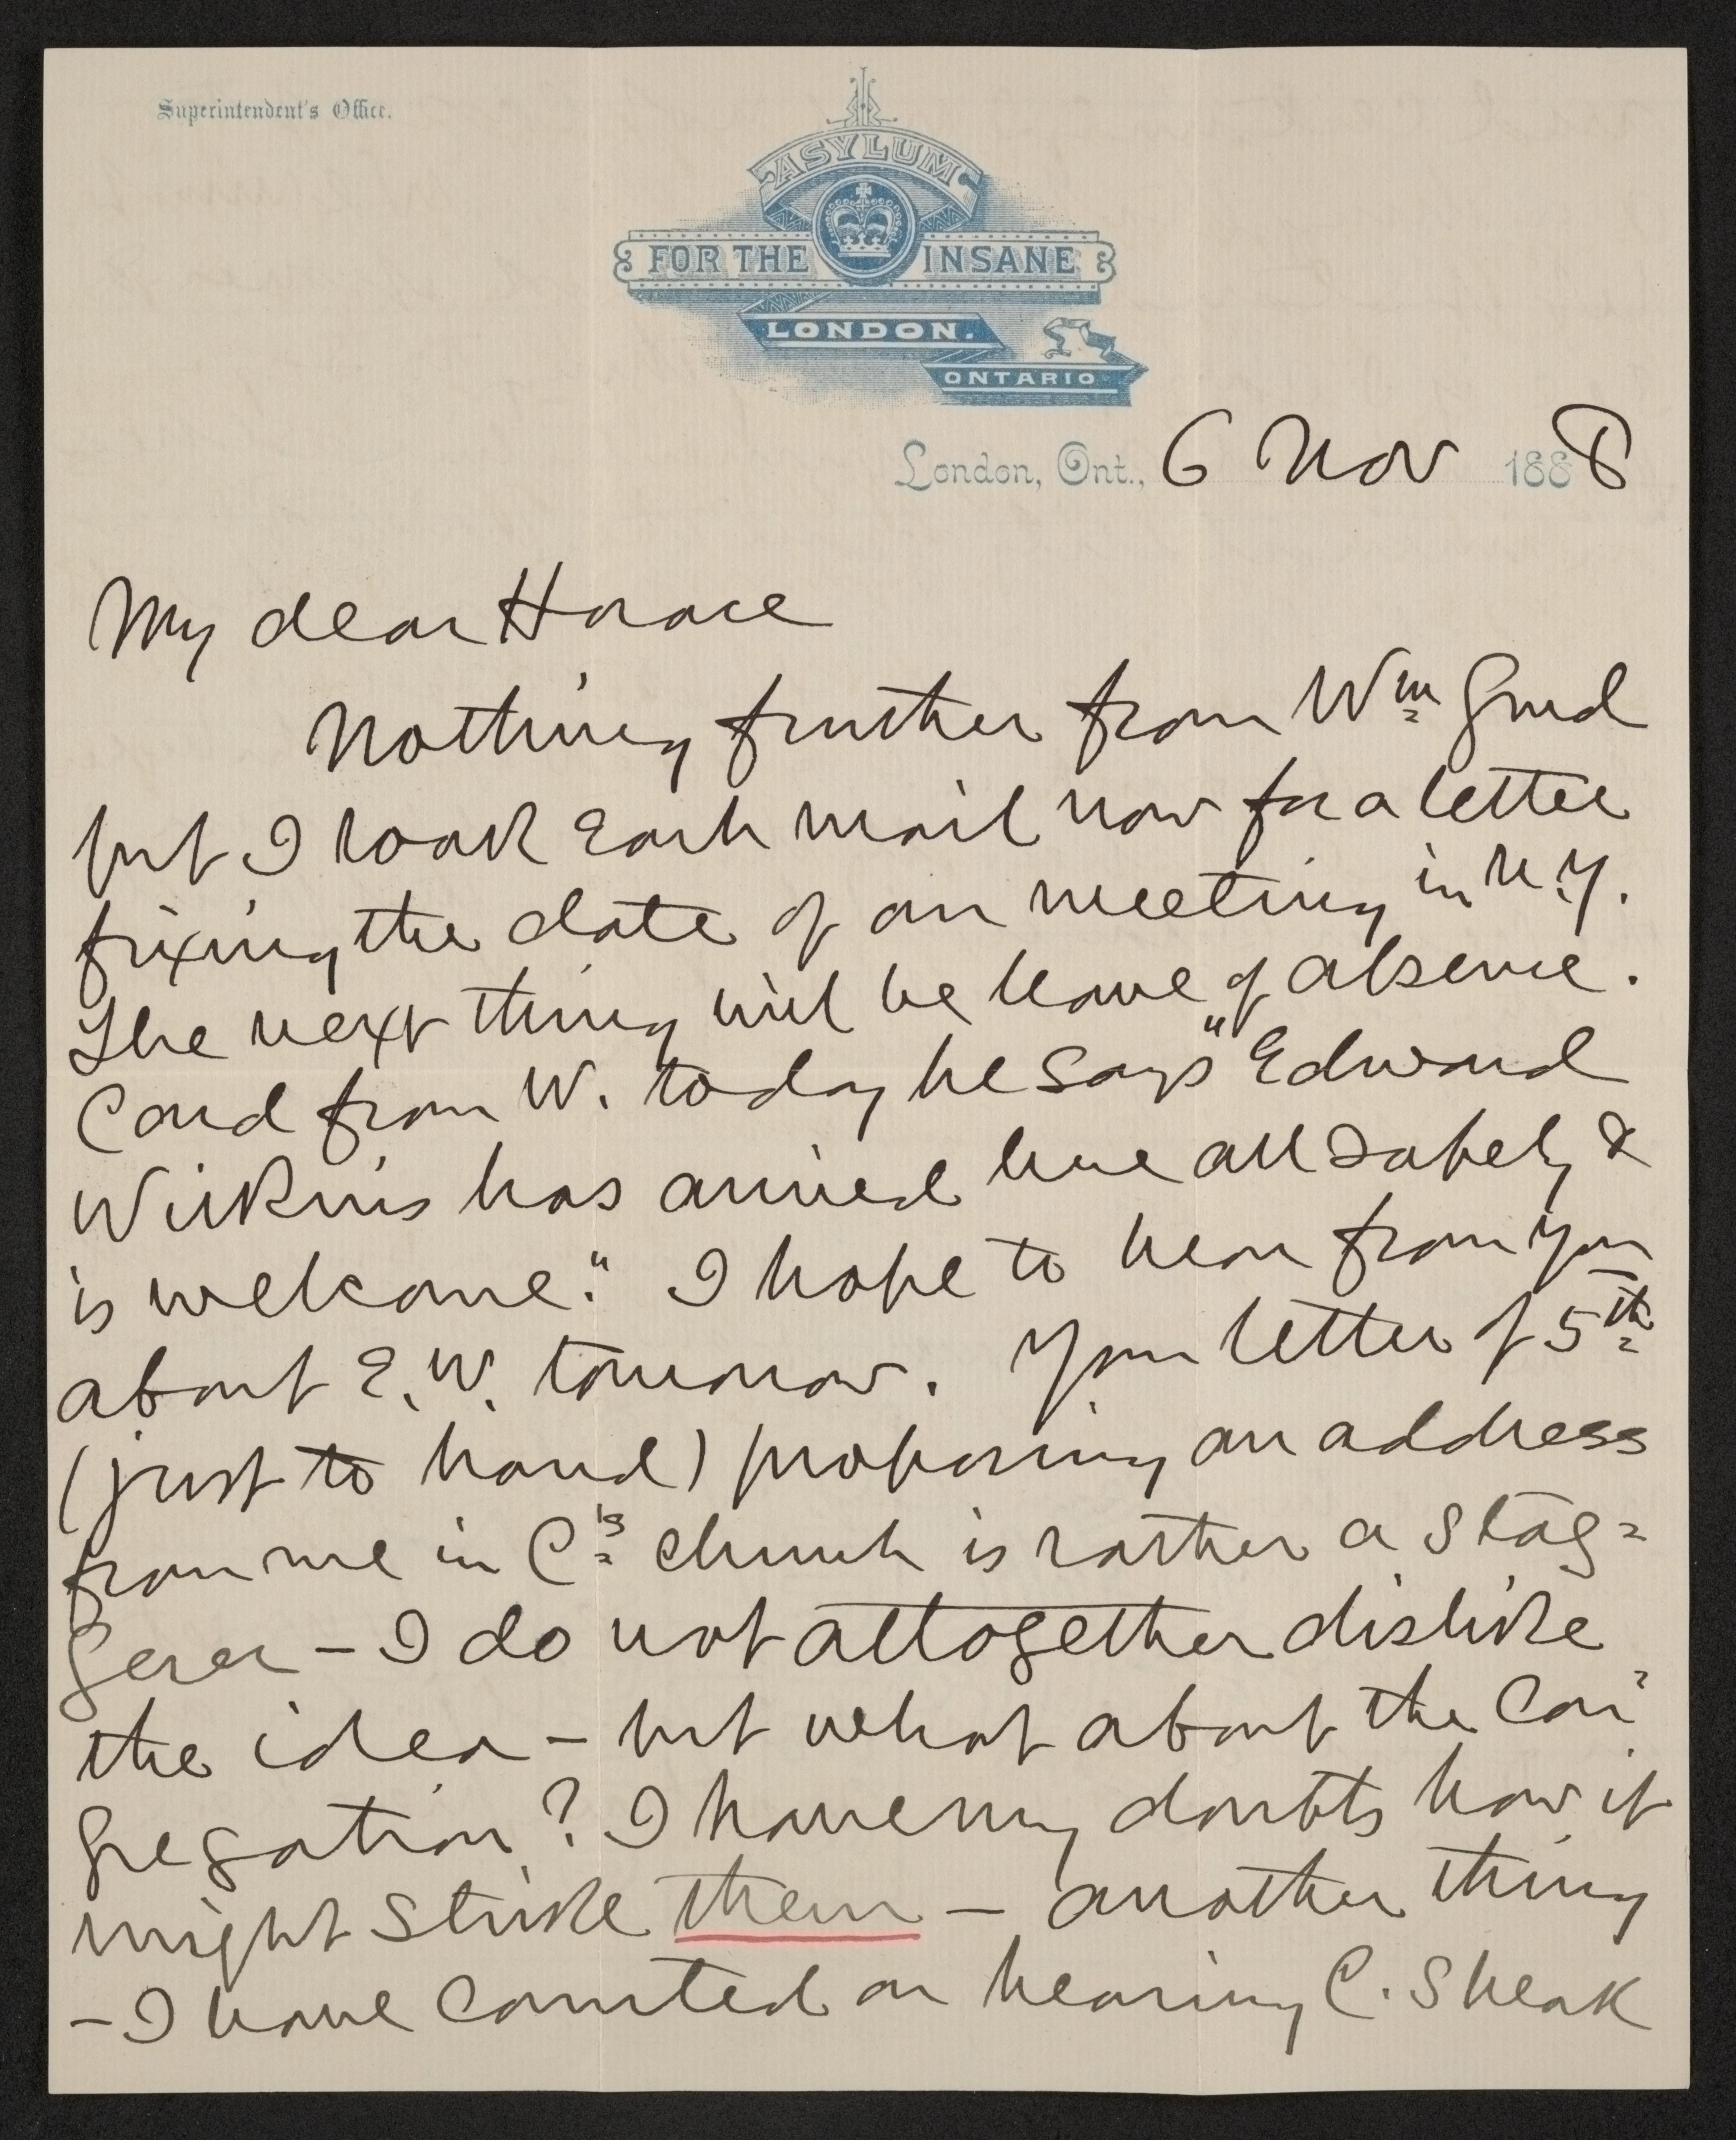 Superintendent's Office.
ASYLUM
FOR THE INSANE
LONDON.
ONTARIO
London, Ont., 6 Nov 1888
My dear Horace
Nothing further from Wm Gurd
but I look each mail now for a letter
fixing the date of our meeting in N.Y.
The next thing will be leave of absence.
Card from W. today he says "Edward
Wilkins has arrived here all safely &
is welcome." I hope to hear from you
about E.W. tomorrow. Your letter of 5th
(just to hand) proposing an address
from me in C's church is rather a stag=
gerer – I do not altogether dislike
the idea – but what about the Con=
gregation? I have my doubts how it
might strike them – another thing
– I have counted on hearing C. speak